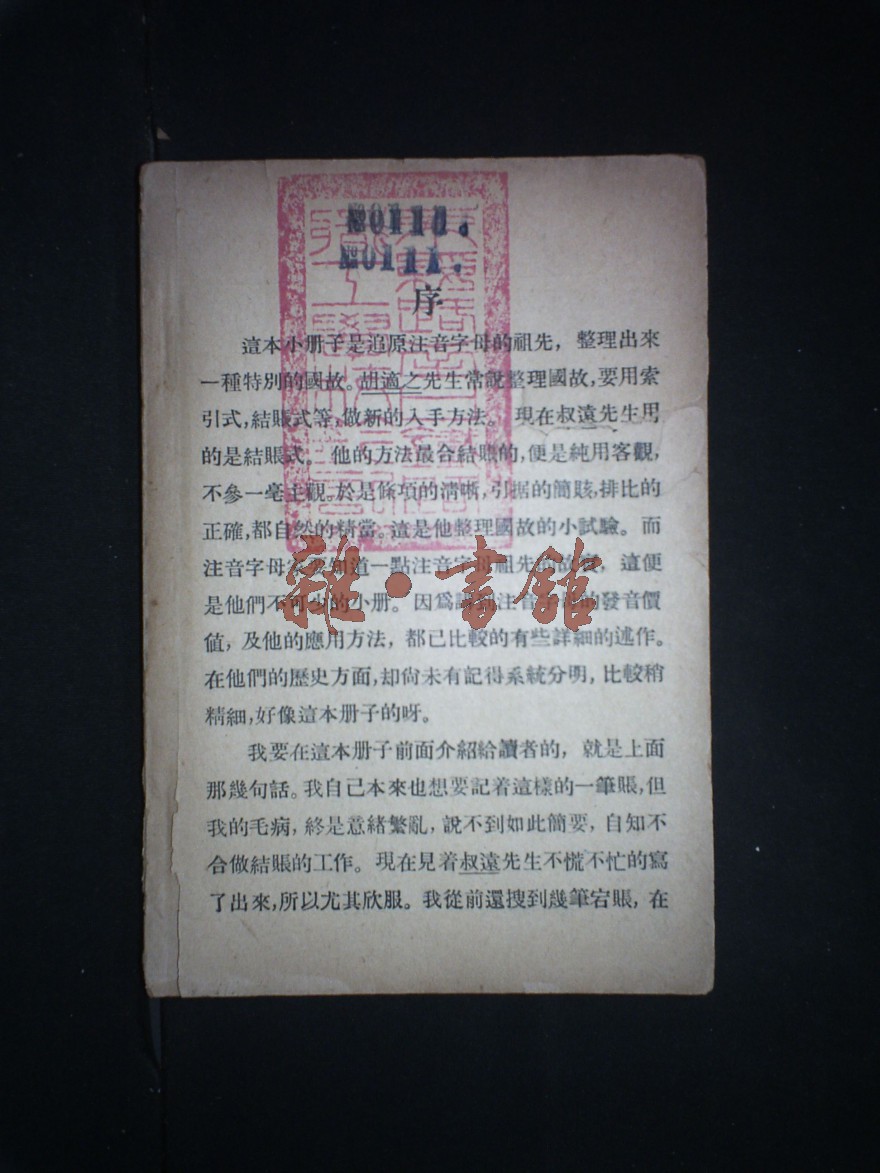 №01110.
№01111.
序
這本小册子是追原注音字母的祖先，整理出來
一種特別的國故。胡適之先生常說整理國故，要用索
引式，結賬式等，做新的入手方法。現在叔遠先生用
的是結賬式。他的方法最合結賬的，便是純用客觀，
不參一毫主觀。於是條項的清晰，引据的簡賅，排比的
正確，都自然的精當。這是他整理國故的小試驗。而
注音字母家要知道一點注音字母祖先的故實，這便
是他們不可少的小册。因爲講到注音字母的發音價
值，及他的應用方法，都已比較的有些詳細的述作。
在他們的歷史方面，却尙未有記得系統分明，比較稍
精細，好像這本册子的呀。
我要在這本册子前面介紹給讀者的，就是上面
那幾句話。我自己本來也想要記着這樣的一筆賬，但
我的毛病，終是意緒繁亂，說不到如此簡要，自知不
合做結賬的工作。現在見着叔遠先生不慌不忙的寫
了出來，所以尤其欣服。我從前還搜到幾筆宕賬，在
雜·書館